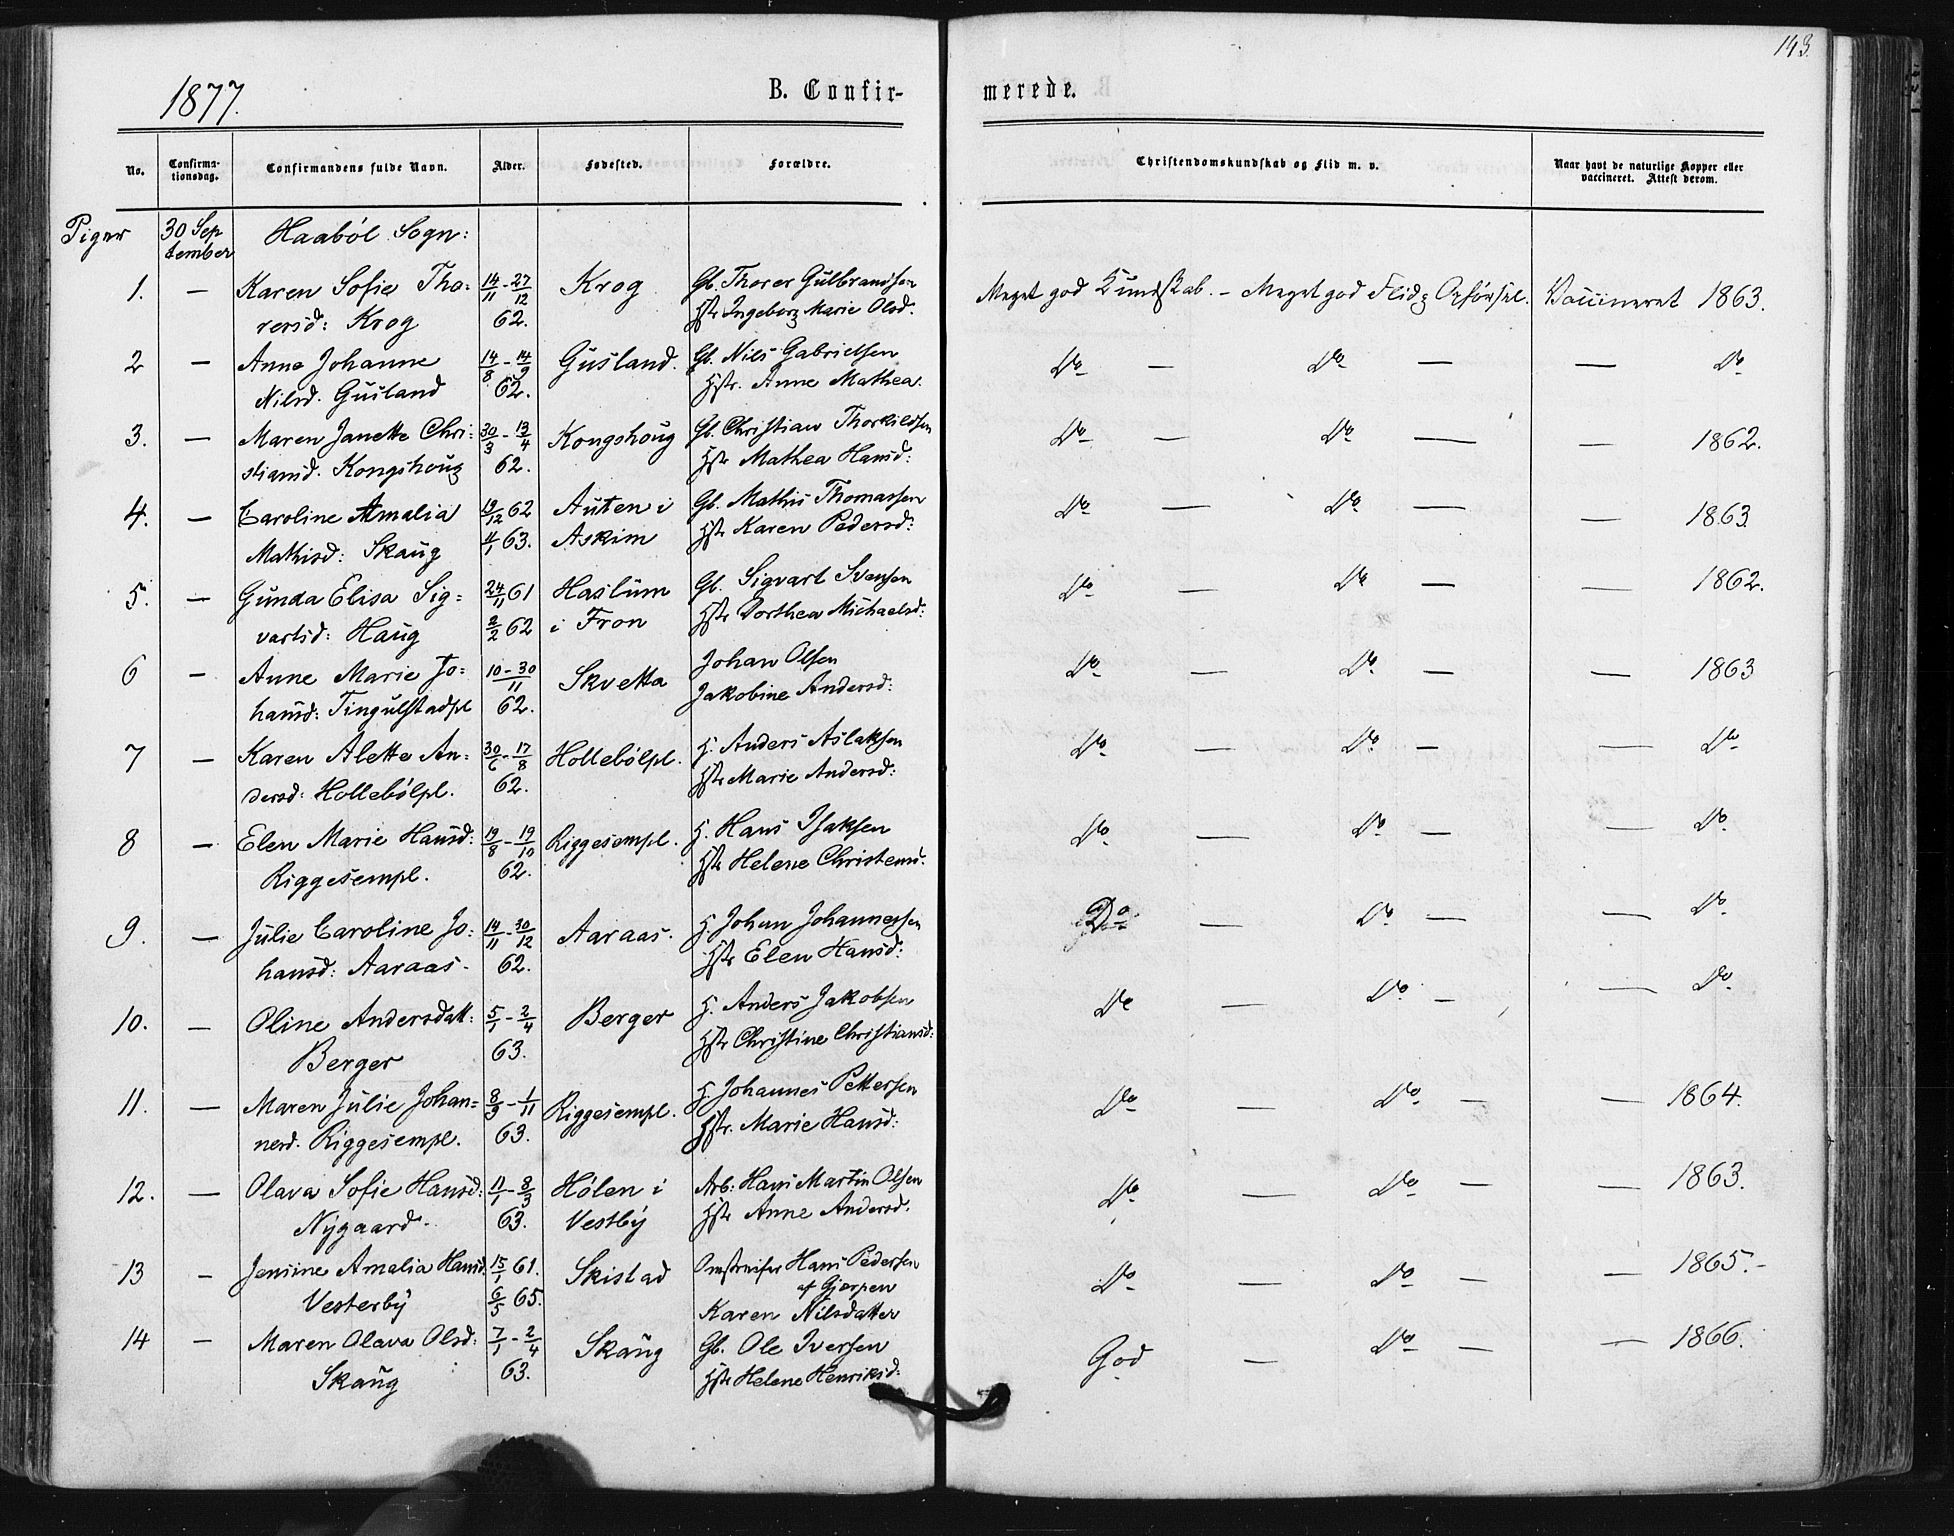 143.
1877.
B. Confir-
merede.
No.
Confirma-
tionsdag.
Confirmandens fulde Navn.
Alder.
Fødested.
Forældre.
Christendomskundskab og Flid m. v.
Naar havt de naturlige Kopper eller
vaccineret. Attest derom.
Piger 30 Sep Haabøl Sogn:
tember
1. — Karen Sofie Tho= 14/11 - 27/12 Krog Gb. Thorer Gulbrandsen Meget god Kundskab. — Meget god Flid & Opførsel. Vaccineret 1863.
rersd: Krog 62. Hstr Ingeborg Marie Olsd.
2 — Anne Johanne 14/8 - 14/9 Gusland. Gb. Nils Gabrielsen Do — Do — — Do
Nilsd. Gusland 62. Hstr. Anne Mathea.
3. — Maren Janette Chri= 30/3 - 13/4 Kongshoug Gb. Christian Thorkildsen Do — Do — — 1862.
stiansd. Kongshoug 62. Hstr Mathea Hansd:
4. — Caroline Amalia 19/12 62 Auten i Gb. Mathis Thomassen Do — Do — — 1863.
Mathisd: Skaug 4/1 63. Askim Hstr Karen Pedersd:
5. — Gunda Elisa Sig= 24/11 61 Haslum Gb. Sigvart Svensen Do — Do — — 1862.
vartsd: Haug 2/2 62 i Fron Hstr Dorthea Michaelsd:
6 — Anne Marie Jo= 10-30/11 Skvetta Johan Olsen Do — Do — — 1863
hansd: Tingulstadpl 62. Jakobine Andersd:
7 — Karen Alette An= 30/6 - 17/8 Hollebølpl. H. Anders Aslaksen Do — Do — — Do
dersd: Hollebølpl. 62. Hstr Marie Andersd:
8 — Elen Marie Hansd: 19/8 - 19/10 Riggesempl. H. Hans Isaksen Do — Do — — Do
Riggesempl. 62. Hstr Helene Christensd.
9. — Julie Caroline Jo= 14/11 - 30/12 Aaraas. H. Johan Johannessen Do — Do — — Do
hansd: Aaraas. 62. Hstr Elen Hansd:
10. — Oline Andersdatt: 5/1 - 2/4 Berger H. Anders Jakobsen Do — Do — — Do
Berger 63. Hstr Christine Christiansd:
11. — Maren Julie Johan= 8/9 - 1/11 Riggesempl. H. Johannes Pettersen Do — Do — — 1864.
nesd. Riggesempl. 63. Hstr. Marie Hansd:
12. — Olava Sofie Hansd: 11/1 - 8/3 Hølen i Arb: Hans Martin Olsen Do — Do — — 1863.
Nygaard. 63. Vestby Hstr Anne Andersd.
13 — Jensine Amalia Hansd. 15/1 61. Skistad Omstreifer Hans Pedersen Do — Do — — 1865.-
Vesterby 6/5 65. af Gjerpen
Karen Nilsdatter
14 — Maren Olava Olsd: 7/1 - 2/4 Skaug Gb. Ole Iversen God — Do — — 1866.
Skaug 63. Hstr Helene Henriksd: